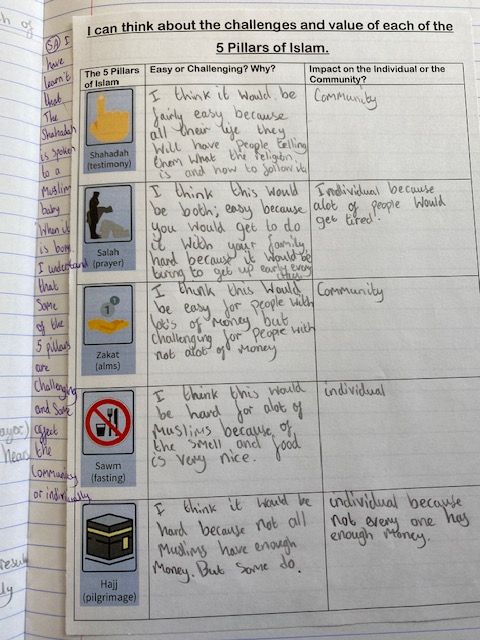 I can think about the challenges and value of each of the
5 Pillars of Islam.
The 5 Pillars
of Islam
Easy or Challenging? Why?
Impact on the Individual or the
Community?
Shahadah
(testimony)
I think it would be
fairly easy because
all their life they
will have people telling
them what the religion
is and how to follow it.
Community
Salah
(prayer)
I think this would
be both; easy because
you would get to do
it with your family
hard because it would be
tiring to get up early every
Individual because
alot of people would
get tired.
1
1
Zakat
(alms)
I think this would
be easy for people with
lots of money but
challenging for people with
not alot of money
Community
Sawm
(fasting)
I think this would
be hard for alot of
Muslims because of
the smell and food
is very nice.
individual
Hajj
(pilgrimage)
I think it would be
hard because not all
Muslims have enough
money. But some do.
individual because
not every one has
enough money.
SA I
have
learn't
that
The
Shahadah
is spoken
to a
Muslim
baby
when it
is born.
I understand
that
Some
of the
5 pillars
are
challenging
and some
affect
the
community
or individually
of